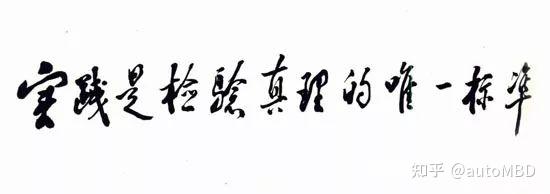 实践是检验真理的唯一标准
知乎 @autoMBD